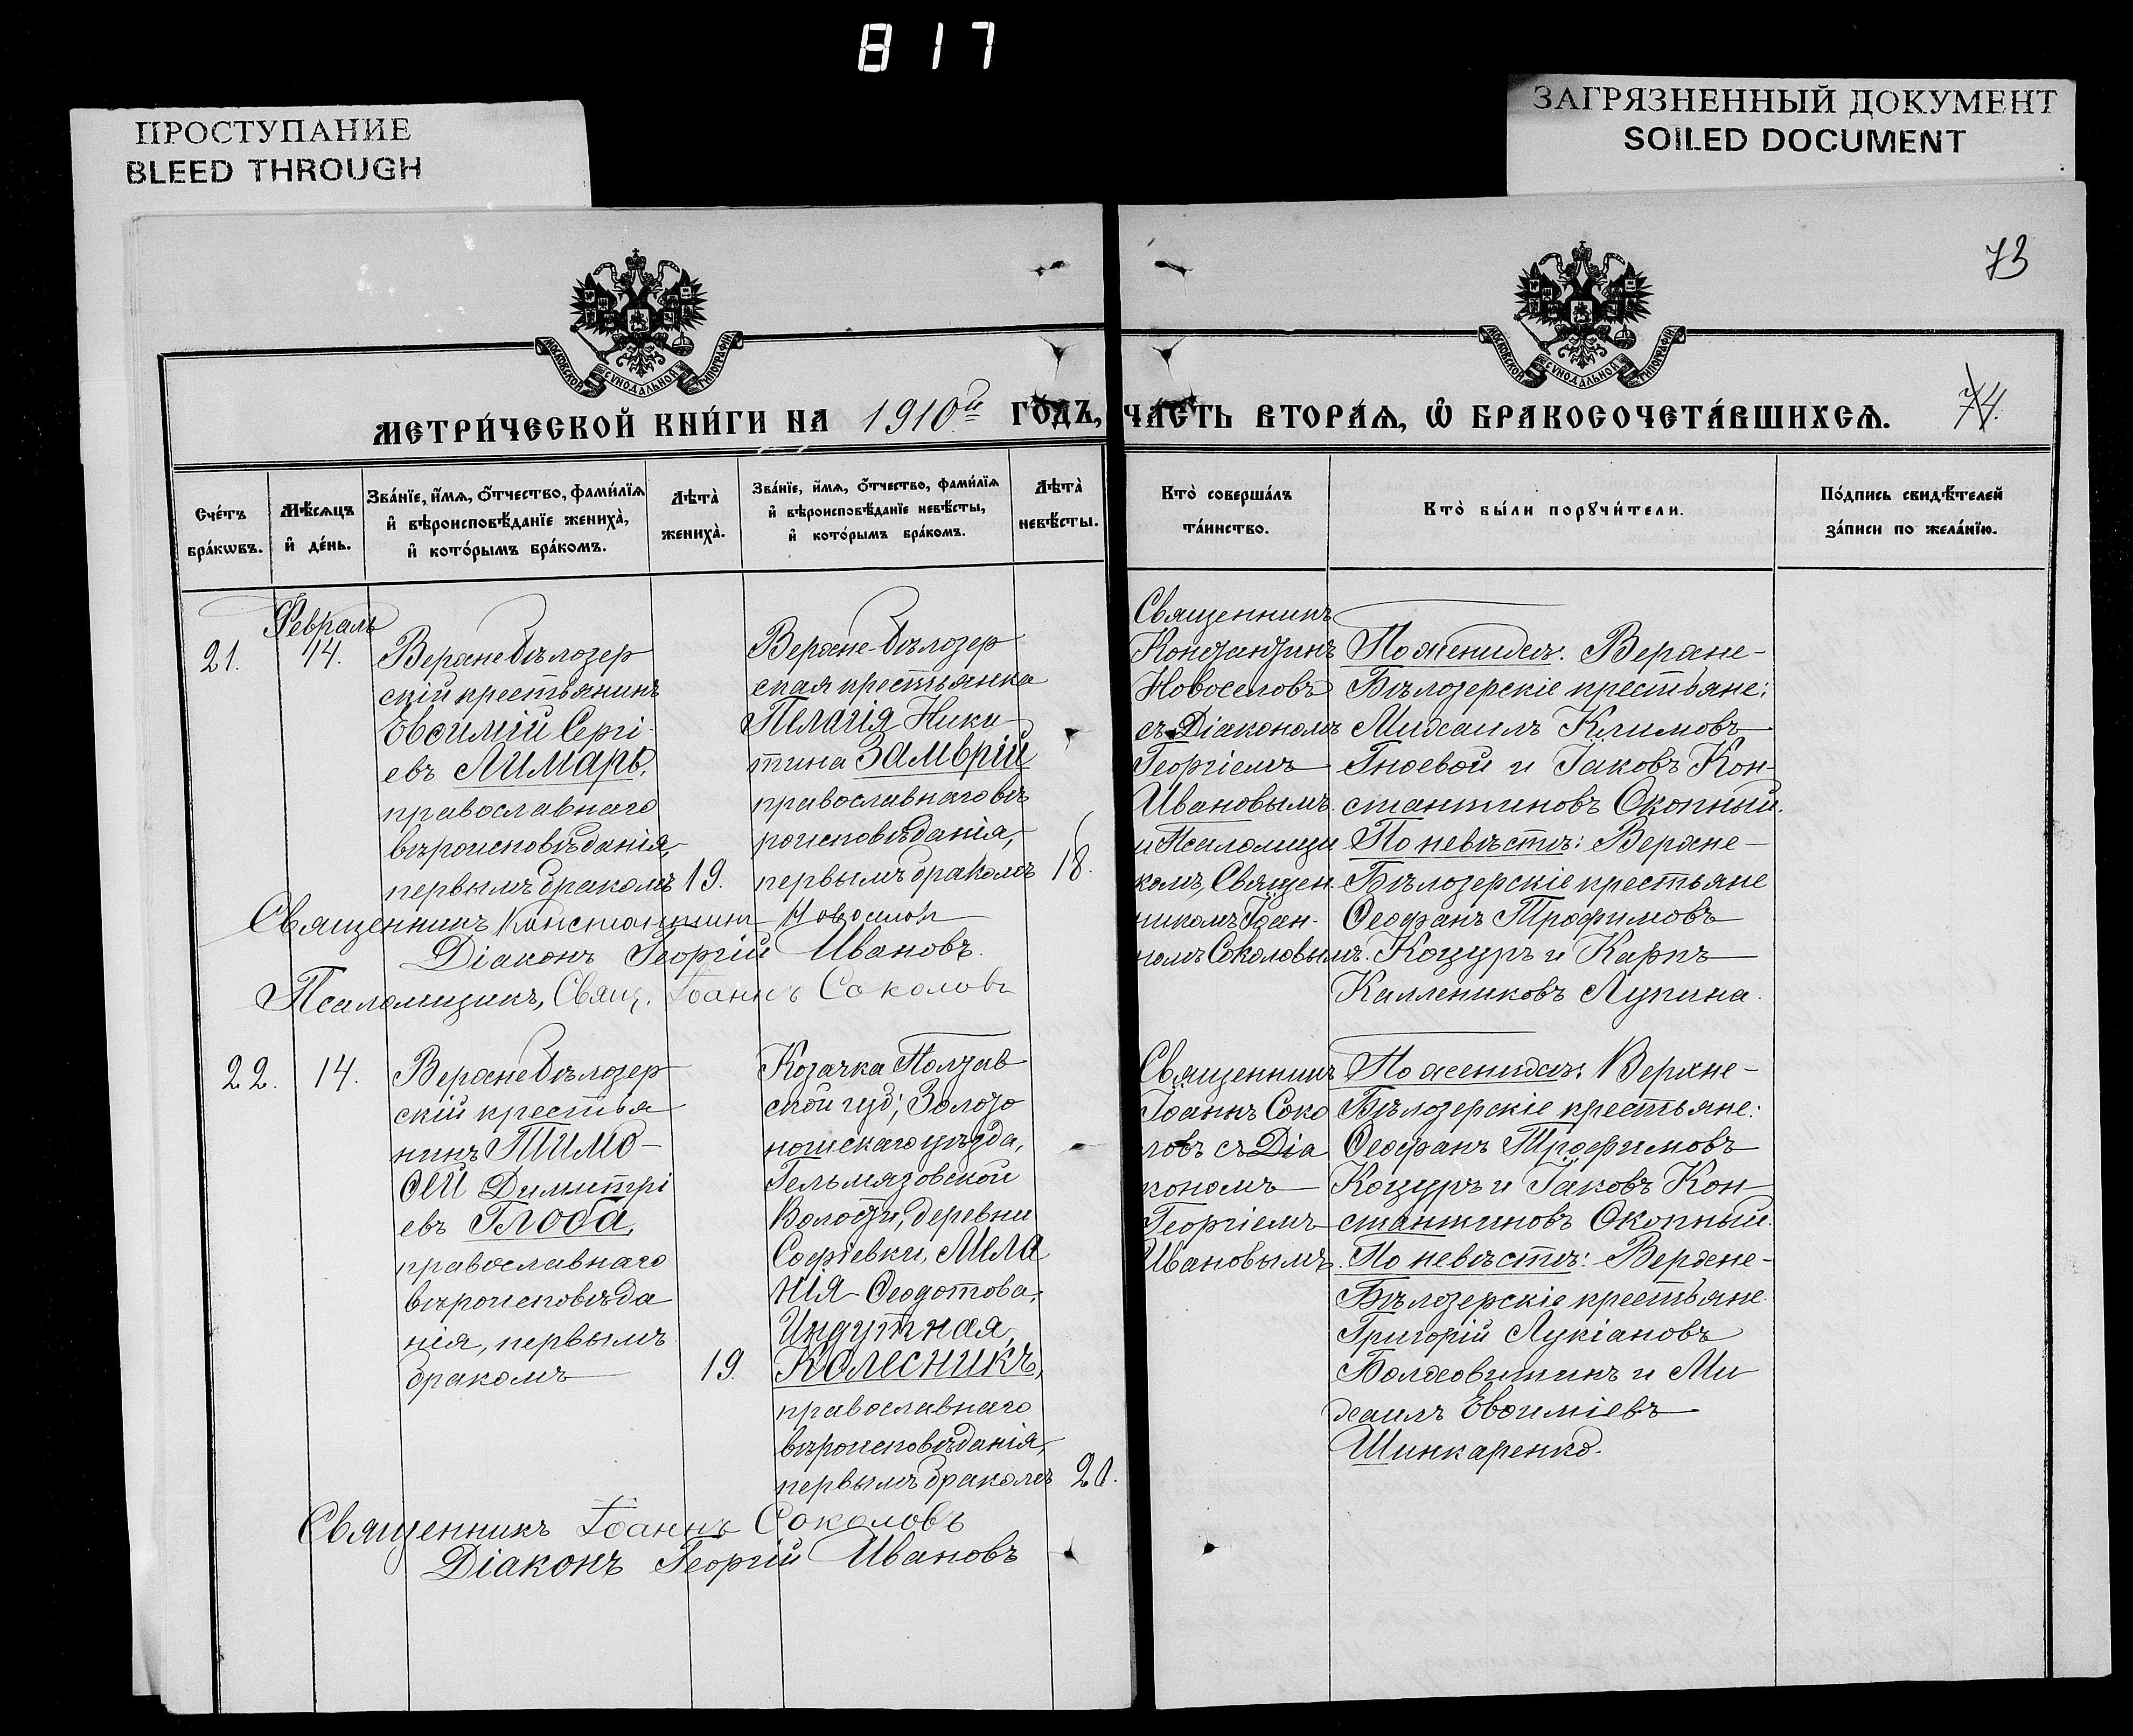 817
ПРОСТУПАНИЕ
BLEED THROUGH
ЗАГРЯЗНЕННЫЙ ДОКУМЕНТ
SOILED DOCUMENT
73
МОСКОВСКОЙ СѴНОДАЛЬНОЙ ТИПОГРАФІИ
МОСКОВСКОЙ СѴНОДАЛЬНОЙ ТИПОГРАФІИ
МЕТРИ́ЧЕСКОЙ КНИ́ГИ НА 1910й ГОДЪ,
ЧА́СТЬ ВТОРА́Ѧ, Ѽ БРАКОСОЧЕТА́ВШИХСѦ.
74.
Сче́тъ
бра́кѡвъ.
Мѣ́сѧцъ
и҆ де́нь.
Зва́нїе, и҆́мѧ, ѻ҆́тчество, фами́лїѧ
и҆ вѣроисповѣ́данїе жениха̀,
и҆ кото́рымъ бра́комъ.
Лѣта̀
жениха̀.
Зва́нїе, и҆́мѧ, ѻ҆́тчество, фами́лїѧ
и҆ вѣроисповѣ́данїе невѣ́сты,
и҆ кото́рымъ бра́комъ.
Лѣта̀
невѣ́сты.
Кто̀ соверша́лъ
та́инство.
Кто̀ бы́ли порꙋчи́тели.
По́дпись свидѣ́телей
за́писи по жела́нїю.
21.
Февраль
14.
Верхнебѣлозер
скій крестьянинъ
Евѳимій Сергі
евъ Лимарь,
православнаго
вѣроисповѣданія,
первымъ бракомъ
19.
Верхне-бѣлозер
ская крестьянка
Пелагія Ники
тина Замврій
православнаго вѣ
роисповѣданія,
первымъ бракомъ
18.
Священникъ
Константинъ
Новоселовъ
съ Діакономъ
Георгіемъ
Ивановымъ
и Псаломщи
комъ, Священ
никомъ Іоан-
номъ Соколовымъ.
По женихѣ: Верхне-
Бѣлозерскіе крестьяне:
Михаилъ Климовъ
Гноевой и Іаковъ Кон-
стантиновъ Окопный.
По невѣстѣ: Верхне-
Бѣлозерскіе крестьяне
Ѳеофанъ Трофимовъ
Коцуръ и Карпъ
Каллениковъ Лупина.
Священникъ Константинъ Новоселовъ
Діаконъ Георгій Ивановъ.
Псаломщикъ, Свящ. Іоаннъ Соколовъ
22.
14.
Верхнебѣлозер
скій крестья
нинъ Тимо-
ѳей Димитрі
евъ Глоба,
православнаго
вѣроисповѣда
нія, первымъ
бракомъ
19.
Козачка Полтав
ской губ; Золото
ношскаго уѣзда,
Гельмязовской
Волости, деревни
Софіевки, Мела
нія Ѳеодотова,
Индутная,
Колесникъ,
православнаго
вѣроисповѣданія,
первымъ бракомъ
20.
Священникъ
Іоаннъ Соко
ловъ съ Діа
кономъ
Георгіемъ
Ивановымъ.
По женихѣ: Верхне-
Бѣлозерскіе крестьяне:
Ѳеофанъ Трофимовъ
Коцуръ и Іаковъ Кон
стантиновъ Окопный.
По невѣстѣ: Верхне-
Бѣлозерскіе крестьяне
Григорій Лукіановъ
Болховитинъ и Ми
хаилъ Евѳиміевъ
Шинкаренко.
Священникъ Іоаннъ Соколовъ
Діаконъ Георгій Ивановъ